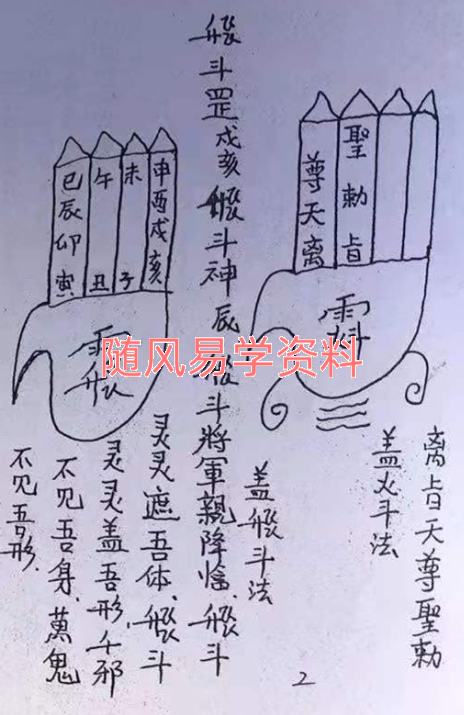 离旨天尊聖勅
盖火斗法
聖勅旨
尊天离
盖斗法
斗罡戌亥斗神辰斗將軍親降临斗
申酉戌亥
未子
午丑
巳辰卯寅
灵灵遮吾体斗
灵灵盖吾形千邪
不见吾身萬鬼
不见吾形
2
随风易学资料